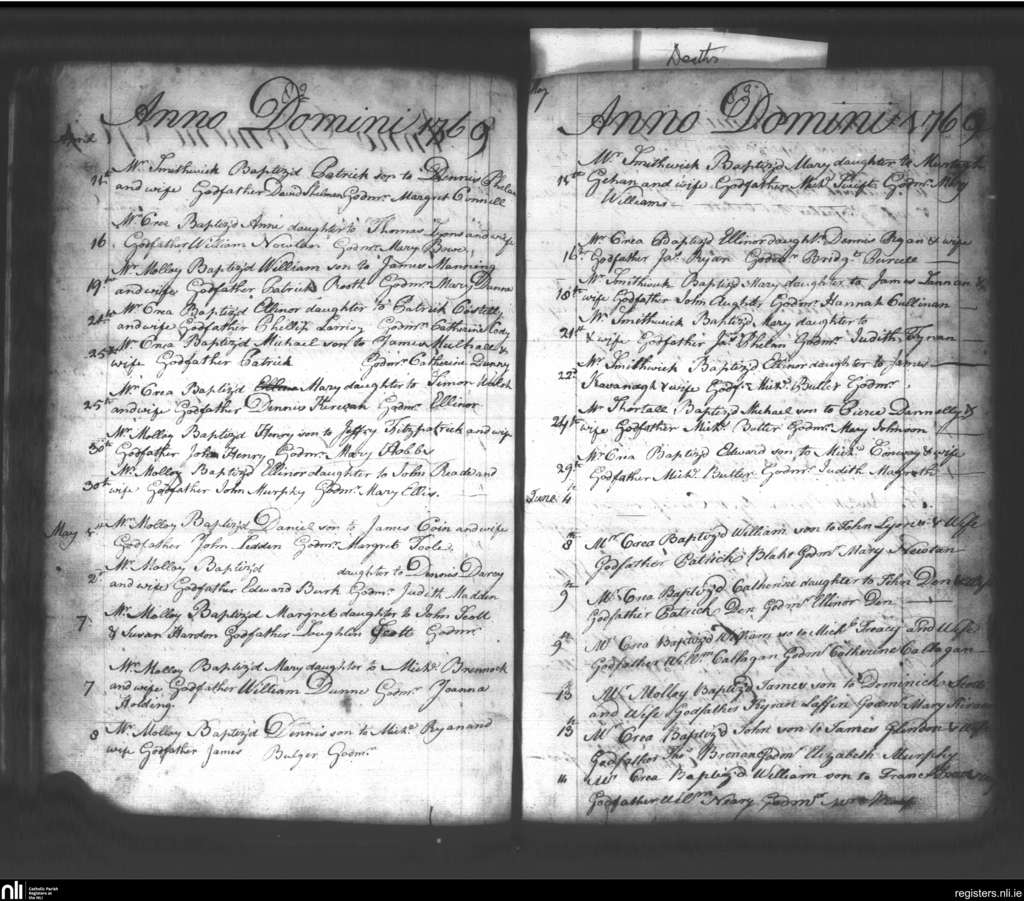 Deaths
Anno Domini 1769
April
14th Mr Smithwick Baptiz'd Patrick son to Dennis Phelan
and wife Godfather David Godmr Margret Connell
16 Mr Crea Baptiz'd Anne daughter to Thomas Lyons and wife
Godfather William Nowlan Godmr Mary Bowe
19th Mr Molloy Baptiz'd William son to James Manning
and wife Godfather Patrick Roth Godmr Mary Dunne
24th Mr Crea Baptiz'd Ellinor daughter to Patrick Costell
and wife Godfather Phellix Larrisy Godmr Catharine Cody
25th Mr Crea Baptiz'd Michael son to James &
wife Godfather Patrick Godmr Catherin Dunny
25th Mr Crea Baptiz'd Mary daughter to Simon Walsh
and wife Godfather Dennis Godmr Ellinor
30th Mr Molloy Baptiz'd Henry son to Jeffry Fitzpatrick and wife
Godfather John Henry Godmr Mary Hobbs
30th Mr Molloy Baptiz'd Ellinor daughter to John Read and
wife Godfather John Murphy Godmr Mary Ellis
May Mr Molloy Baptiz'd Daniel son to James Coin and wife
Godfather John Godmr Margret Toole
2d Mr Molloy Baptiz'd daughter to Dennis Darcy
and wife Godfather Edward Burk Godmr Judith Madden
7 Mr Molloy Baptiz'd Margret daughter to John Scott
& Susan Hardon Godfather Loughlin Scott Godmr
7 Mr Molloy Baptiz'd Mary daughter to Michl Brennock
and wife Godfather William Dunne Godmr Joanna
Holding
8 Mr Molloy Baptiz'd Dennis son to Michl Ryan and
wife Godfather James Bulger Godmr
May
Anno Domini 1769
14th Mr Smithwick Baptiz'd Mary daughter to Murtagh
Gehan and wife Godfather Michl Swift Godmr Mary
Williams
16th Mr Crea Baptiz'd Ellinor daughtr Dennis Regan & wife
Godfather Jas Ryan Godmr Bridgt Purcell
18th Mr Smithwick Baptiz'd Mary daughter to James Lannan &
wife Godfather John Aughter Godmr Hannah Cullinan
21st Mr Smithwick Baptiz'd Mary daughter to
& wife Godfather Jas Phelan Godmr Judith Tynan
22d Mr Smithwick Baptiz'd Ellinor daughter to James
Kavanagh & wife Godfr Michl Butler Godmr
24th Mr Shortall Baptiz'd Michael son to Pierce Dannelly &
wife Godfather Michl Butler Godmr Mary Johnson
29th Mr Crea Baptiz'd Edward son to Michl Conway & wife
Godfather Michl Butler Godmr Judith Magrath
June 4
8th Mr Crea Baptiz'd William son to John Lyons & Wife
Godfather Patrick Blake Godmr Mary Newlan
9th Mr Crea Baptiz'd Catherine daughter to John Den & Wife
Godfather Patrick Den Godmr Ellinor Den
9th Mr Crea Baptiz'd William so to Michl Treacy and Wife
Godfather Wm Callagan Godmr Catherine Callagan
13 Mr Molloy Baptiz'd James son to Dominick Scott
and Wife Godfather Kyran Laffen Godmr Mary
13th Mr Crea Baptiz'd John son to James Glindon & Wife
Godfather Thos Brenan Godmr Elizabeth Murphy
Mr Crea Baptiz'd William son to Francis
Godfather Willm Neary Godmr
nli
Catholic Parish
Registers at
the NLI
registers.nli.ie